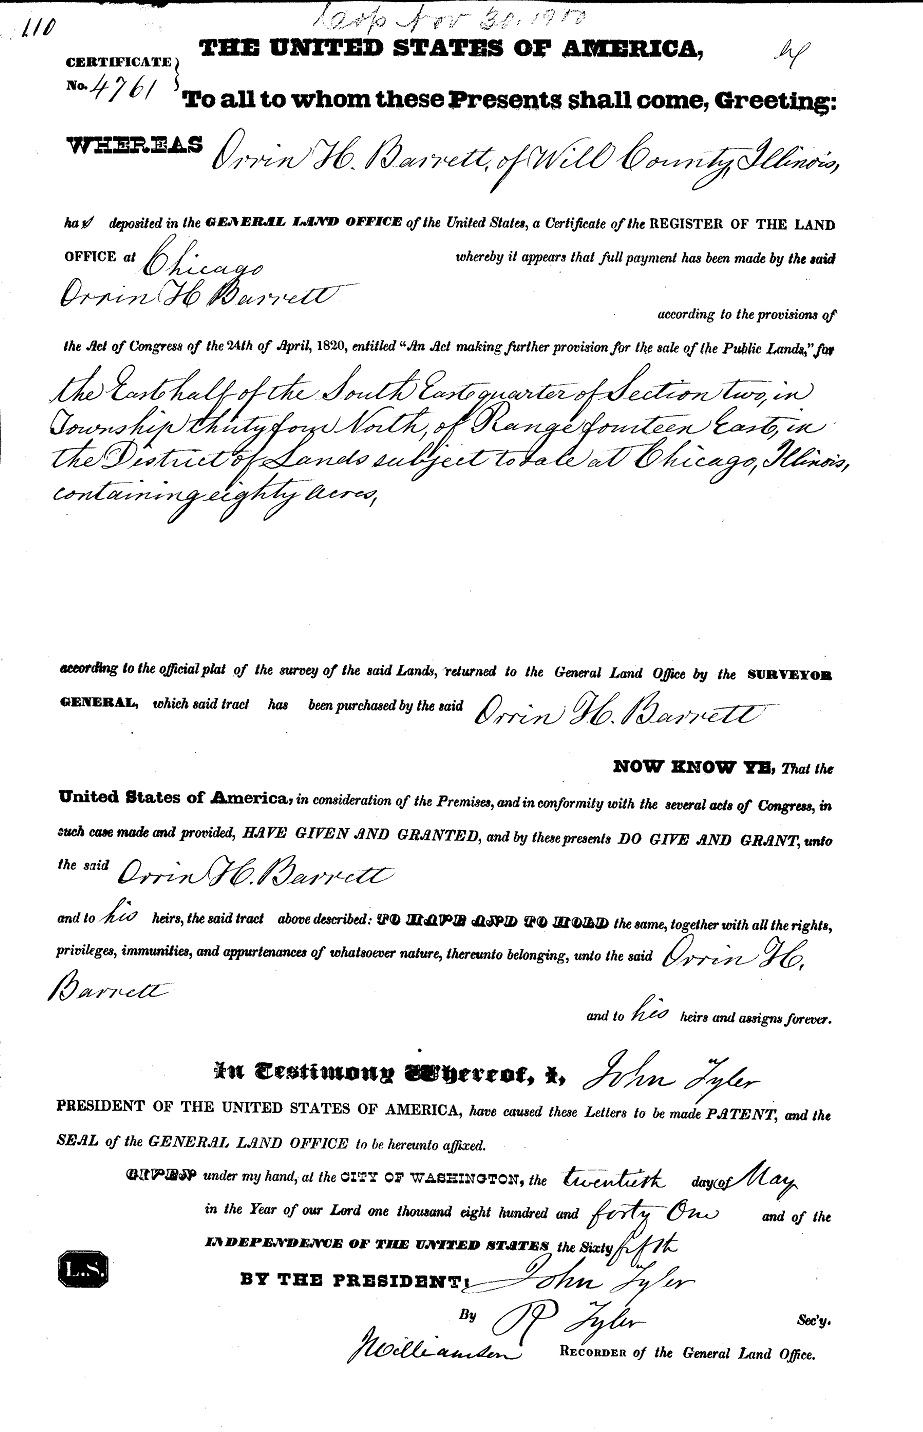 Nov 30, 1900
110
THE UNITED STATES OF AMERICA,
CERTIFICATE
No. 4761
To all to whom these Presents shall come, Greeting:
WHEREAS Orrin H. Barrett, of Will County, Illinois,
has deposited in the GENERAL LAND OFFICE of the United States, a Certificate of the REGISTER OF THE LAND
OFFICE at Chicago whereby it appears that full payment has been made by the said
Orrin H Barrett according to the provisions of
the Act of Congress of the 24th of April, 1820, entitled "An Act making further provision for the sale of the Public Lands," for
the East half of the South East quarter of Section two, in
Township thirty four North, of Range fourteen East, in
the District of Lands subject to sale at Chicago, Illinois,
containing eighty acres,
according to the official plat of the survey of the said Lands, returned to the General Land Office by the SURVEYOR
GENERAL, which said tract has been purchased by the said Orrin H. Barrett
NOW KNOW YE, That the
United States of America, in consideration of the Premises, and in conformity with the several acts of Congress, in
such case made and provided, HAVE GIVEN AND GRANTED, and by these presents DO GIVE AND GRANT, unto
the said Orrin H. Barrett
and to his heirs, the said tract above described: TO HAVE AND TO HOLD the same, together with all the rights,
privileges, immunities, and appurtenances of whatsoever nature, thereunto belonging, unto the said Orrin H.
Barrett
and to his heirs and assigns forever.
In Testimony Whereof, I, John Tyler
PRESIDENT OF THE UNITED STATES OF AMERICA, have caused these Letters to be made PATENT, and the
SEAL of the GENERAL LAND OFFICE to be hereunto affixed.
GIVEN under my hand, at the CITY OF WASHINGTON, the twentieth day of May
in the Year of our Lord one thousand eight hundred and forty One and of the
INDEPENDENCE OF THE UNITED STATES the Sixty fifth
L.S.
BY THE PRESIDENT: John Tyler
By R Tyler Sec'y.
Williamson RECORDER of the General Land Office.